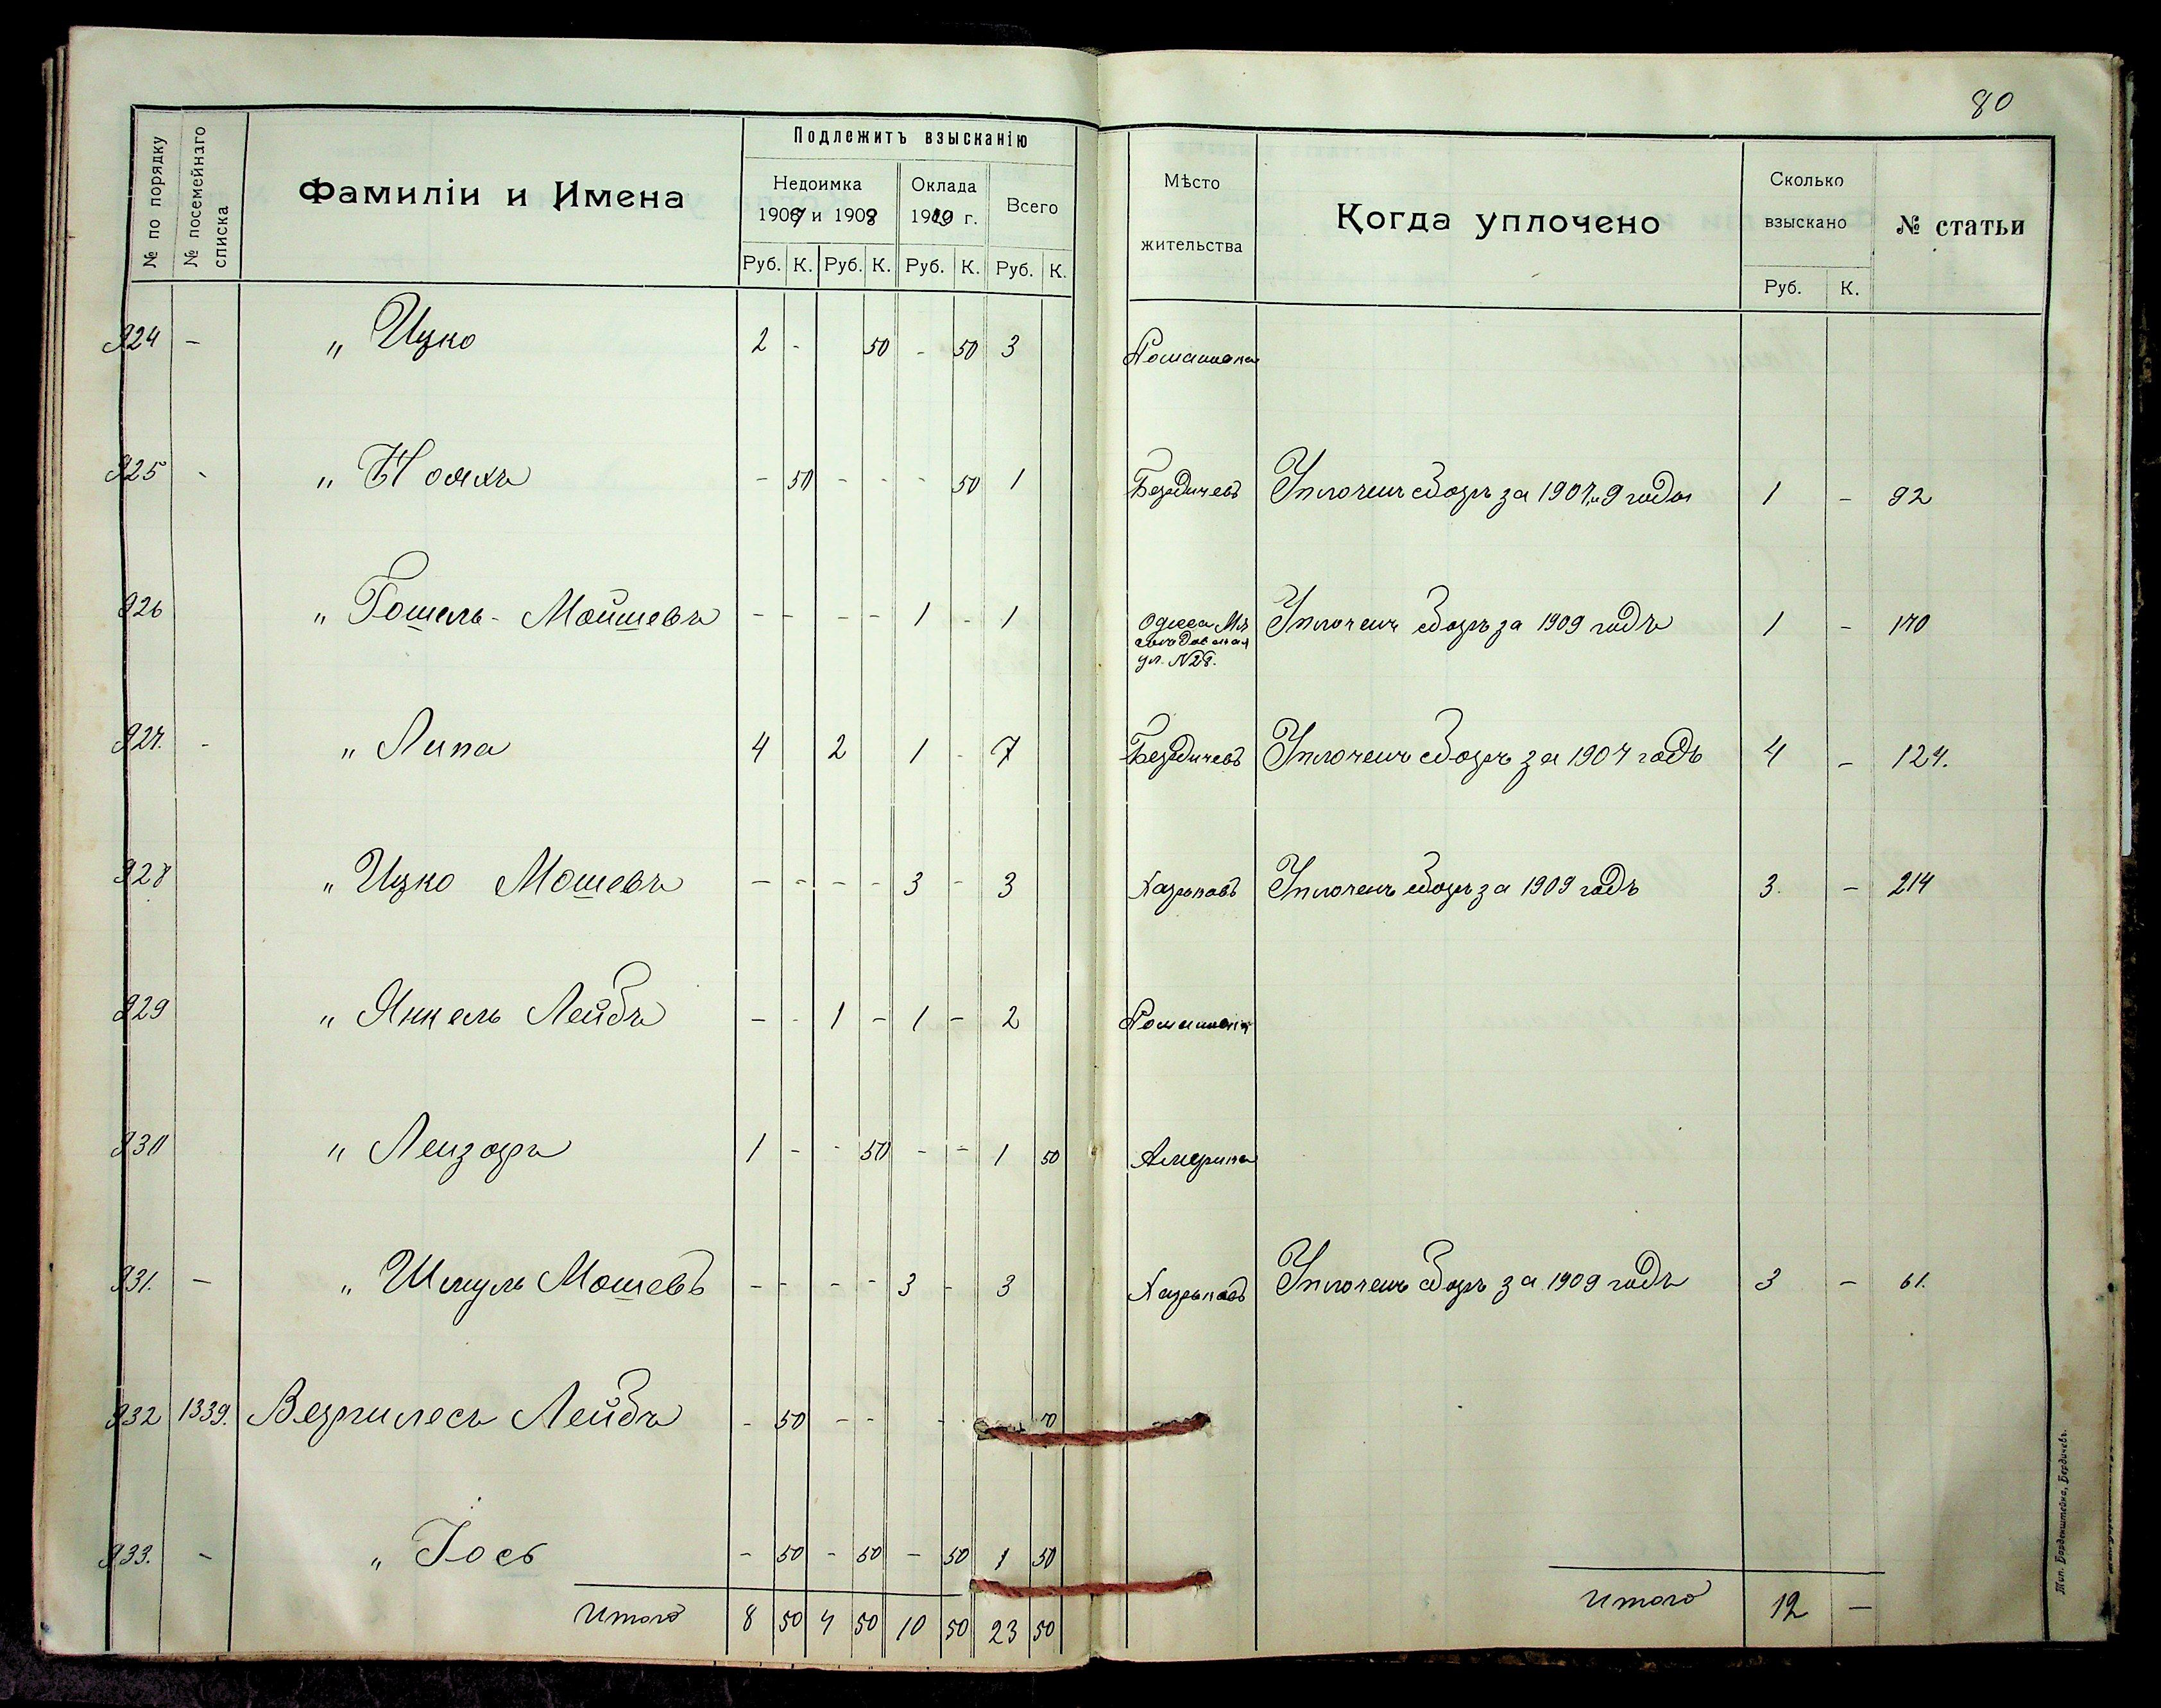 80
№ по порядку
№ посемейнаго списка
Фамиліи и Имена
Подлежитъ взысканію
Недоимка
1907 и 1908
Оклада
1909 г.
Всего
Руб. К. Руб. К. Руб. К. Руб. К.
Мѣсто
жительства
Когда уплочено
Сколько
взыскано
Руб. К.
№ статьи
924 – „ Ицко 2 - 50 - 50 3 Романовка
925 - „ Нояхъ - 50 - - - 50 1 Бердичевъ Уплоченъ сборъ за 1907 и 9 годы 1 – 92
926 „ Гошель - Мойшевъ - - - - 1 - 1 Одесса
ул. N28.
Уплоченъ сборъ за 1909 годъ 1 – 170
927. - „ Липа 4 2 1 - 7 Бердичевъ Уплоченъ сборъ за 1907 годъ 4 – 124.
928 „ Ицко Мошевъ - - - - 3 - 3 Харьковъ Уплоченъ сборъ за 1909 годъ 3. – 214
929 „ Янкель Лейбъ - - 1 - 1 - 2 Романовка
930 „ Лейзоръ 1 - - 50 - - 1 50 Америка
931. – „ Шмуль Мошевъ - - - - 3 - 3 Харьковъ Уплоченъ сборъ за 1909 годъ 3 – 61.
932 1339. Вергилесъ Лейбъ - 50 - - -
933. - „ Іось - 50 - 50 - 50 1 50
Итого 8 50 4 50 10 50 23 50
Итого 12 –
Тип. Боденштейна, Бердичевъ.